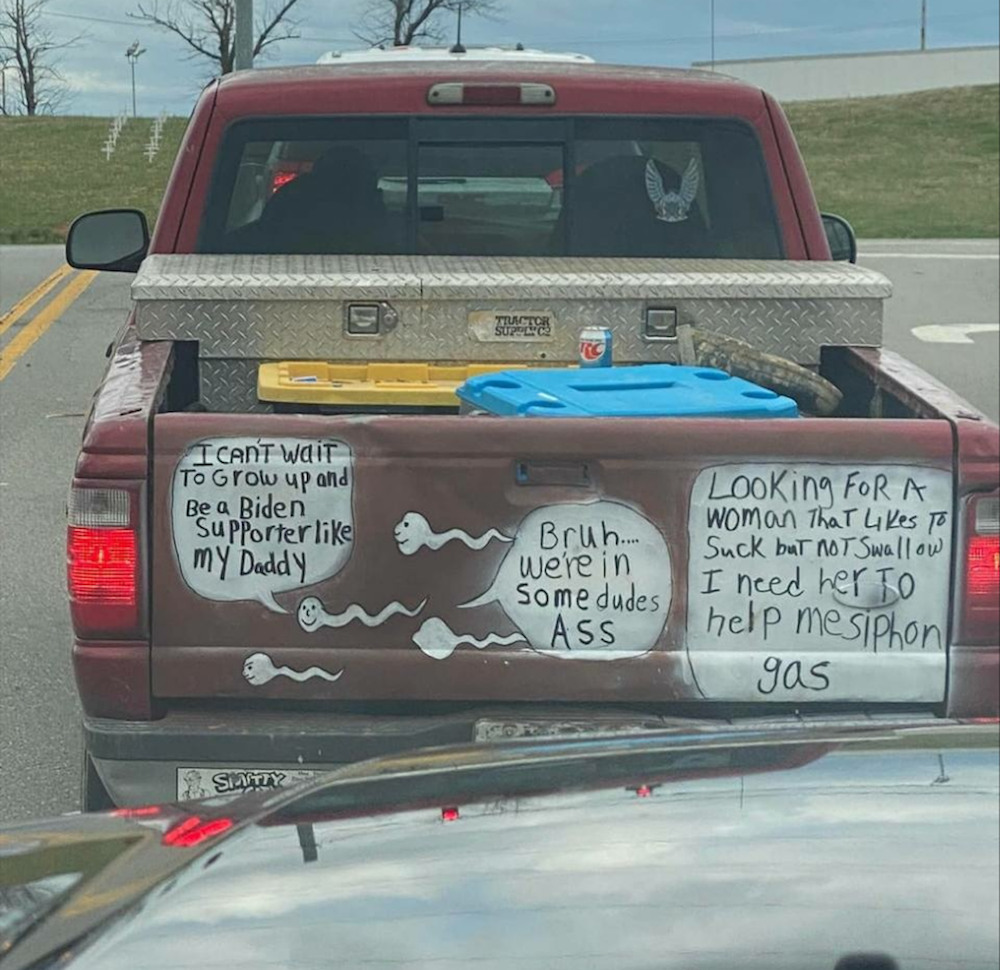 TRACTOR
SUPPLY CO
RC
I CAN'T WAIT
TO GROW up and
Be a Biden
SUPPORTER like
MY Daddy
Bruh....
we're in
some dudes
ASS
LOOKING FOR A
WOMAN THAT LIKES TO
Suck buT NOT Swallow
I need her TO
help me siphon
gas
SMITTY